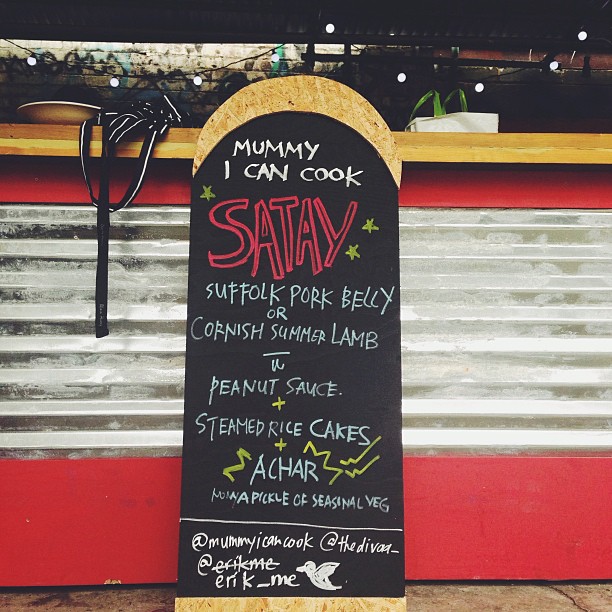 MUMMY
I CAN COOK
SATAY
SUFFOLK PORK BELLY
OR
CORNISH SUMMER LAMB
PEANUT SAUCE.
+
STEAMED RICE CAKES
+
ACHAR
PICKLE OF SEASINAL VEG
@mummyicancook @thedivaa_
@erikme
erik_me